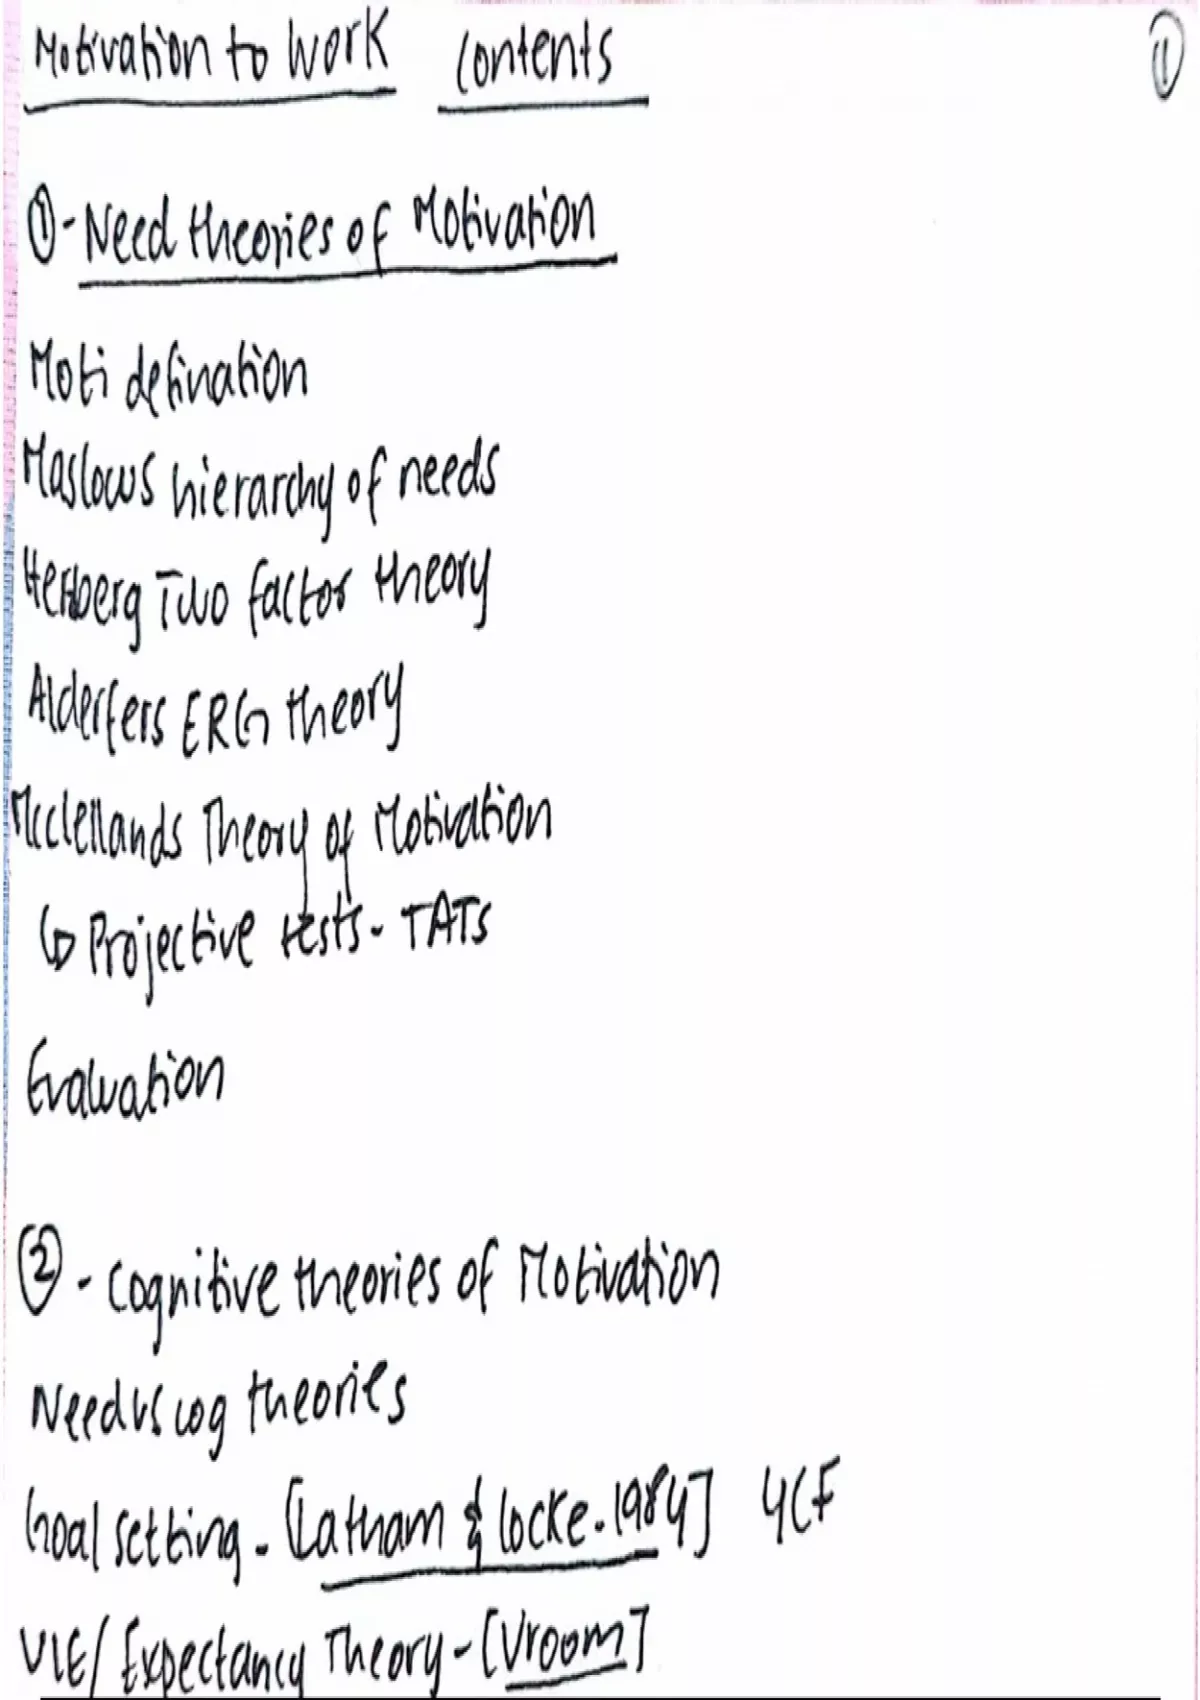 Motivation to Work Contents
①
①- Need theories of Motivation
Moti defination
Maslows hierarchy of needs
Herzberg Two factor theory
Alderfers ERG theory
Mcclellands Theory of Motivation
↳ Projective tests - TATs
Evaluation
② - Cognitive theories of Motivation
Need vs cog theories
Goal setting - [Latham & Locke - 1984] 4CF
VIE/ Expectancy Theory - [Vroom]